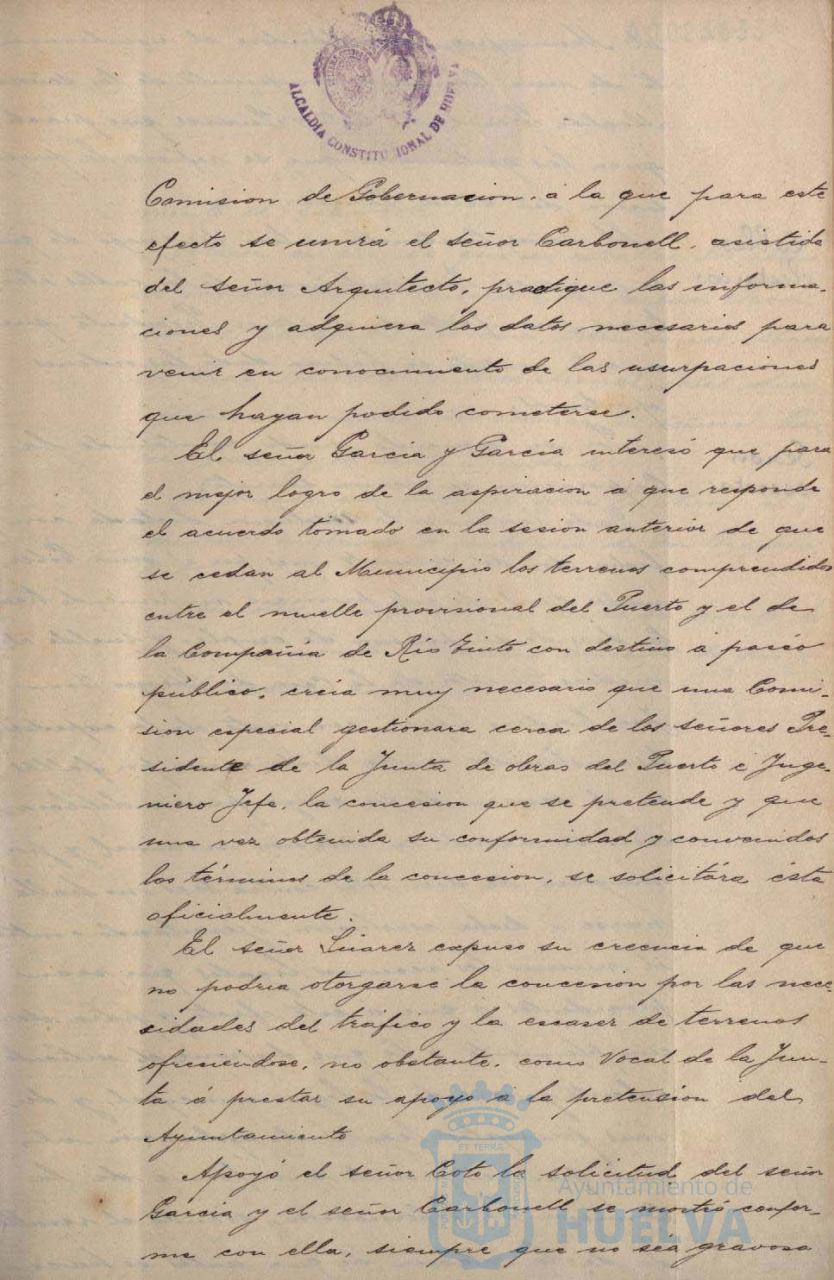 ALCALDIA CONSTITUCIONAL DE HUELVA
Comision de Gobernacion, á la que para este
efecto se unirá el señor Carbonell, asistida
del señor Arquitecto, practique las informa-
ciones y adquiera los datos necesarios para
venir en conocimiento de las usurpaciones
que hayan podido cometerse.
El señor Garcia y Garcia interesó que para
el mejor logro de la aspiracion á que responde
el acuerdo tomado en la sesion anterior de que
se cedan al Municipio los terrenos comprendidos
entre el muelle provisional del Puerto y el de
la Compañia de Rio Tinto con destino á paseo
público, creia muy necesario que una Comi-
sion especial gestionara cerca de los señores Pre-
sidente de la Junta de obras del Puerto é Inge-
niero Jefe, la concesion que se pretende y que
una vez obtenida su conformidad y convenidos
los términos de la concesion, se solicitára ésta
oficialmente.
El señor Suarez expuso su creencia de que
no podria otorgarse la concesion por las nece-
sidades del tráfico y la escasez de terrenos
ofreciéndose, no obstante, como Vocal de la Jun-
ta á prestar su apoyo á la pretension del
Ayuntamiento
Apoyó el señor Coto la solicitud del señor
Garcia y el señor Carbonell se mostró confor-
me con ella, siempre que no sea gravosa
ET TERRAE
Ayuntamiento de
HUELVA